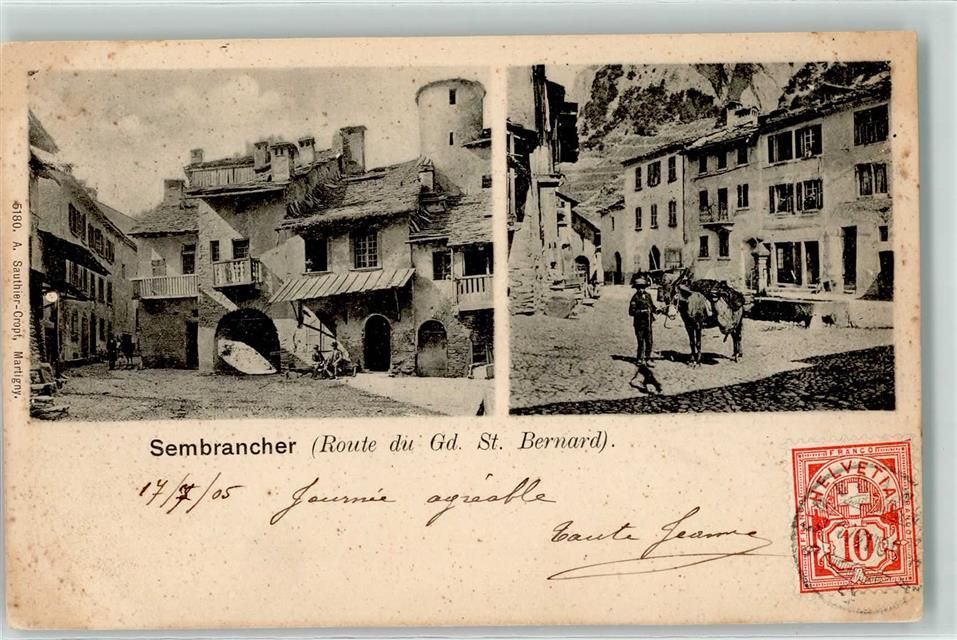 5180. A. Sauthier-Cropt, Martigny.
Sembrancher (Route du Gd. St. Bernard).
17/7/05 Journée agréable
Tante Jeanne
FRANCO
HELVETIA
10